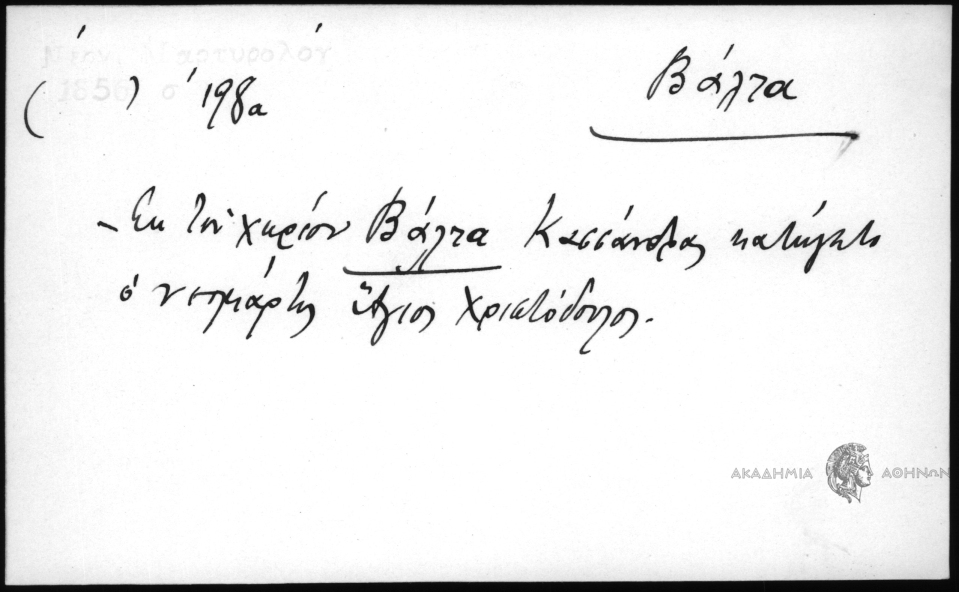 Νέον Μαρτυρολόγ
(1856) σ 198α
Βάλτα
- Εκ του χωρίου Βάλτα Κασσάνδρας κατάγεται
ὁ νεομάρτης Ἅγιος Χριστόδουλος.
ΑΚΑΔΗΜΙΑ ΑΘΗΝΩΝ